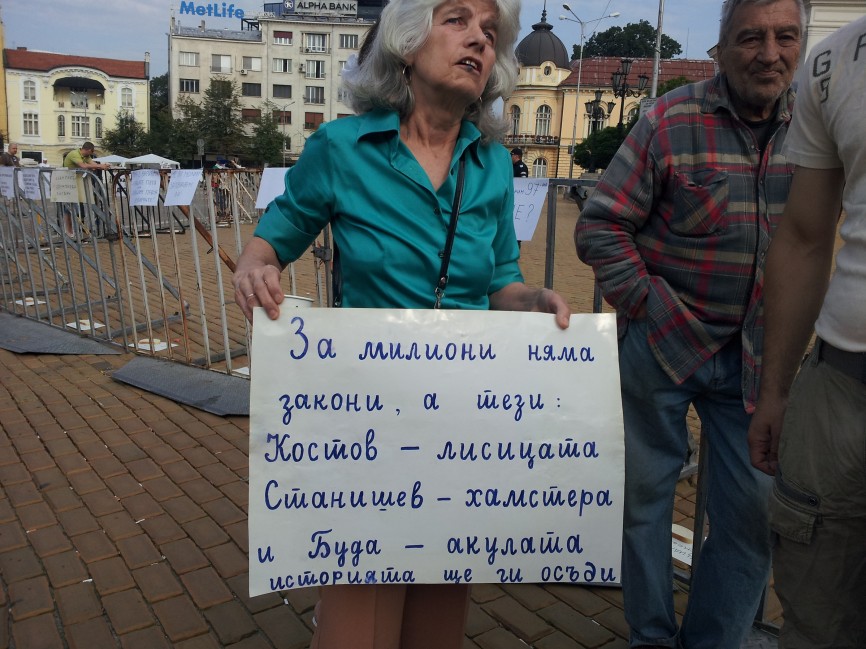 MetLife
ALPHA BANK
97
Е?
G
За милиони няма
закони, а тези:
Костов – лисицата
Станишев – хамстера
и Буда – акулата
историята ще ги осъди